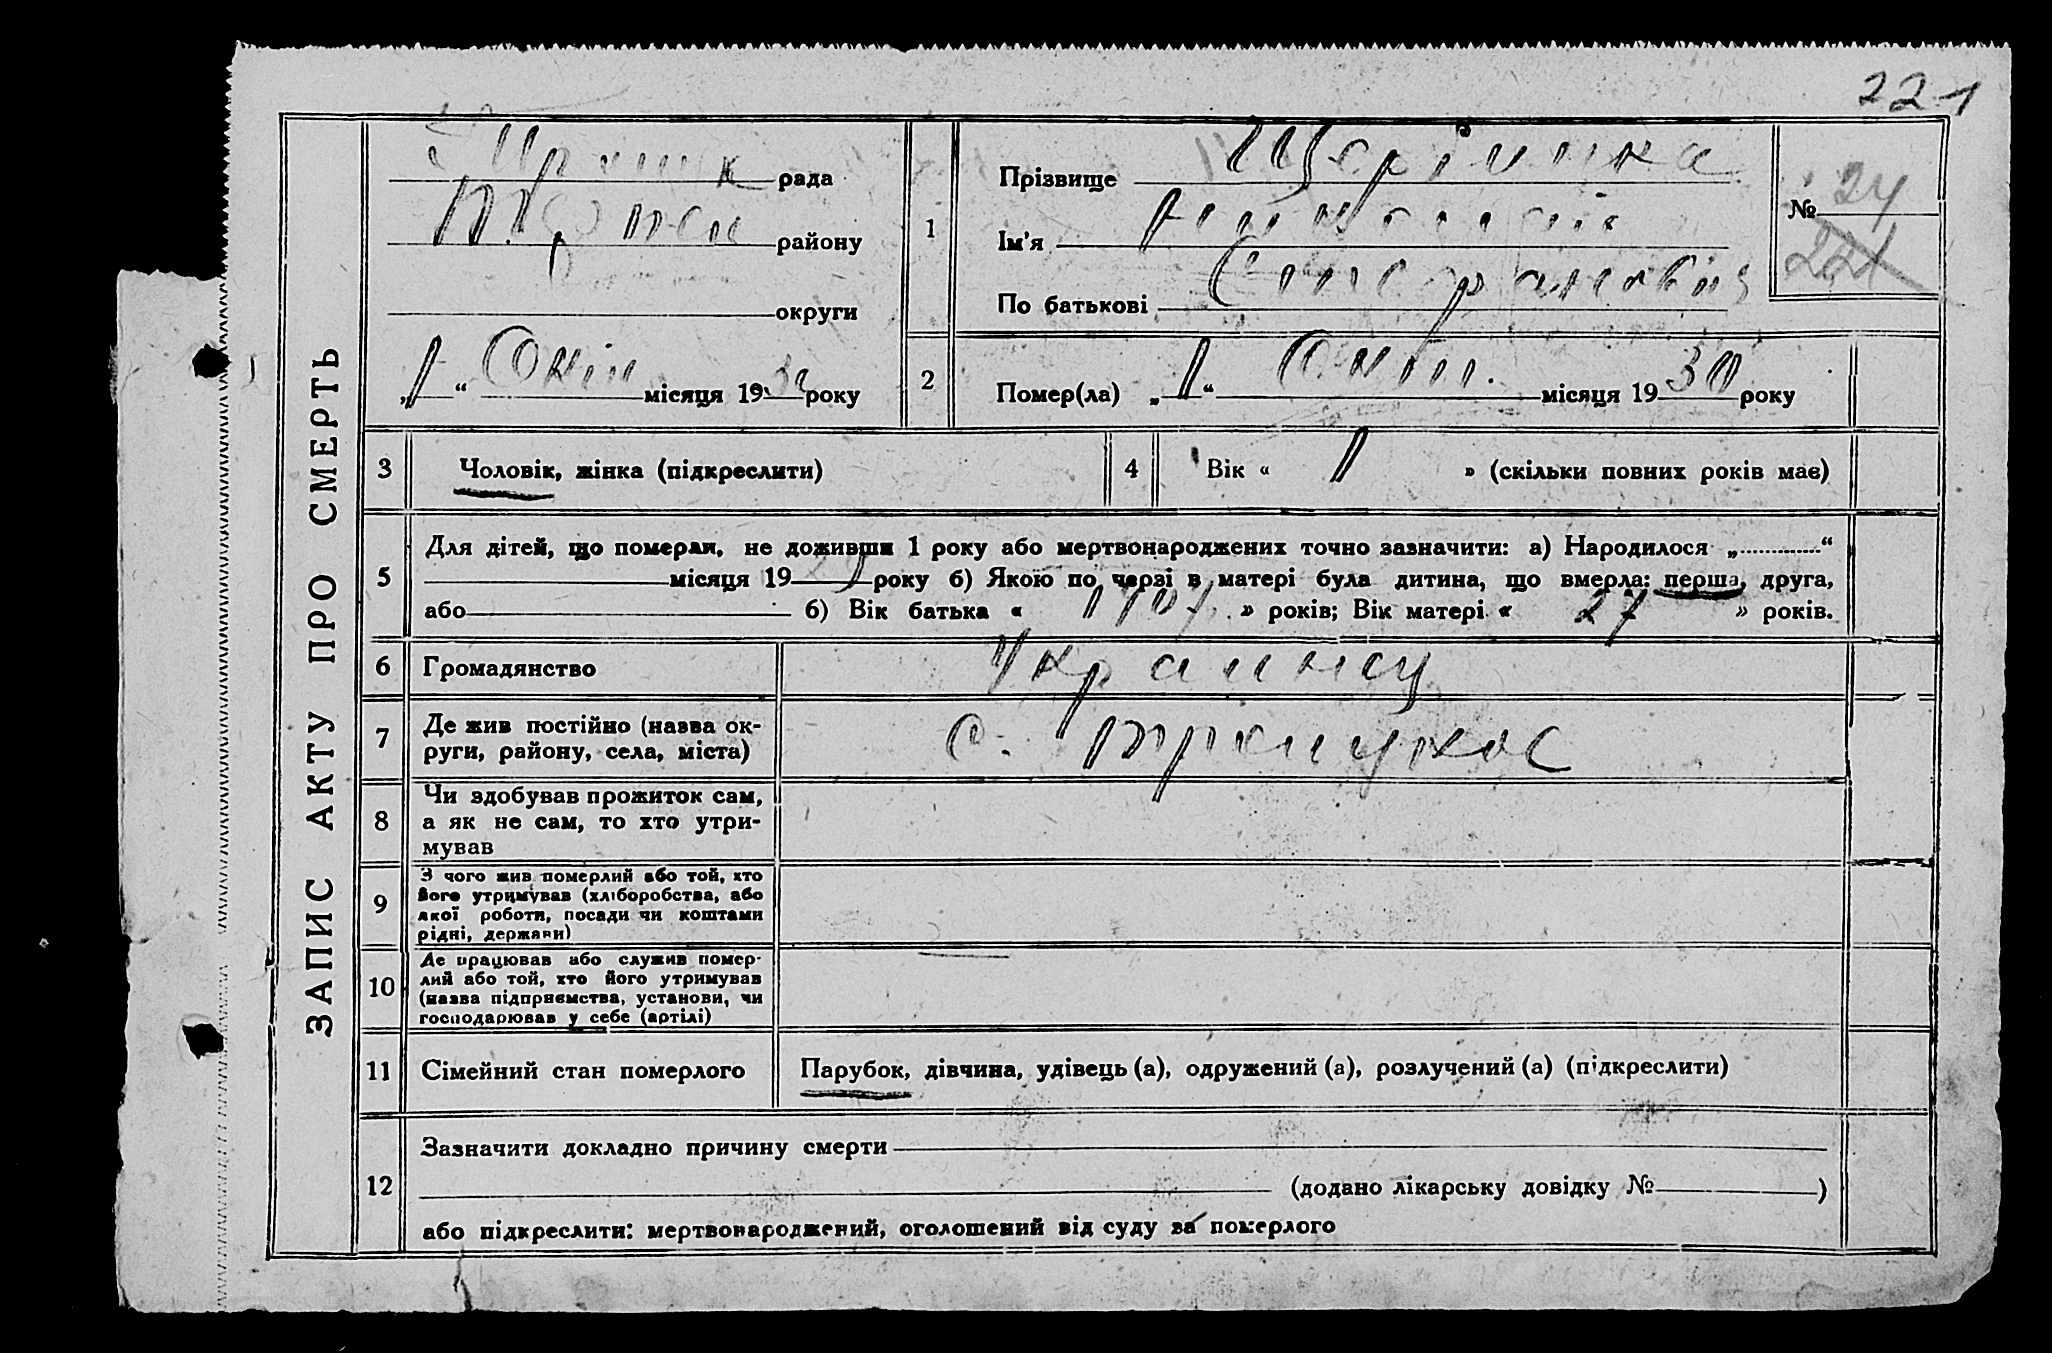 221
ЗАПИС АКТУ ПРО СМЕРТЬ
рада
району
округи
„1“ місяця 1930 року
1
Прізвище
Ім'я
По батькові
№ 24
221
2
Помер(ла) „1“ Окт. місяця 1930 року
3
Чоловік, жінка (підкреслити)
4
Вік « 1 » (скільки повних років має)
5
Для дітей, що померли, не доживши 1 року або мертвонароджених точно зазначити: а) Народилося „ “
місяця 1929 року б) Якою по черзі в матері була дитина, що вмерла: перша, друга,
або б) Вік батька « 1907 » років; Вік матері « 27 » років.
6
Громадянство
Украинец
7
Де жив постійно (назва ок-
руги, району, села, міста)
с.
8
Чи здобував прожиток сам,
а як не сам, то хто утри-
мував
9
З чого жив померлий або той, хто
його утримував (хліборобства, або
якої роботи, посади чи коштами
рідні, держави)
10
Де працював або служив помер-
лий або той, хто його утримував
(назва підприємства, установи, чи
господарював у себе (артілі)
11
Сімейний стан померлого
Парубок, дівчина, удівець (а), одружений (а), розлучений (а) (підкреслити)
12
Зазначити докладно причину смерти
(додано лікарську довідку № )
або підкреслити: мертвонароджений, оголошений від суду за померлого